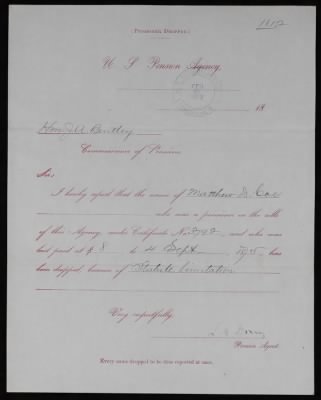 [PENSIONER DROPPED.]
U. S. Pension Agency,
18
Hon. J. A. Bentley
Commissioner of Pensions
Sir:
I hereby report that the name of Matthew D. Coe
who was a pensioner on the rolls
of this Agency, under Certificate No. and who was
last paid at $8 to 4 Sept 1875, has
been dropped, because of Statute Limitation
Very respectfully,
Pension Agent.
Every name dropped to be thus reported at once.